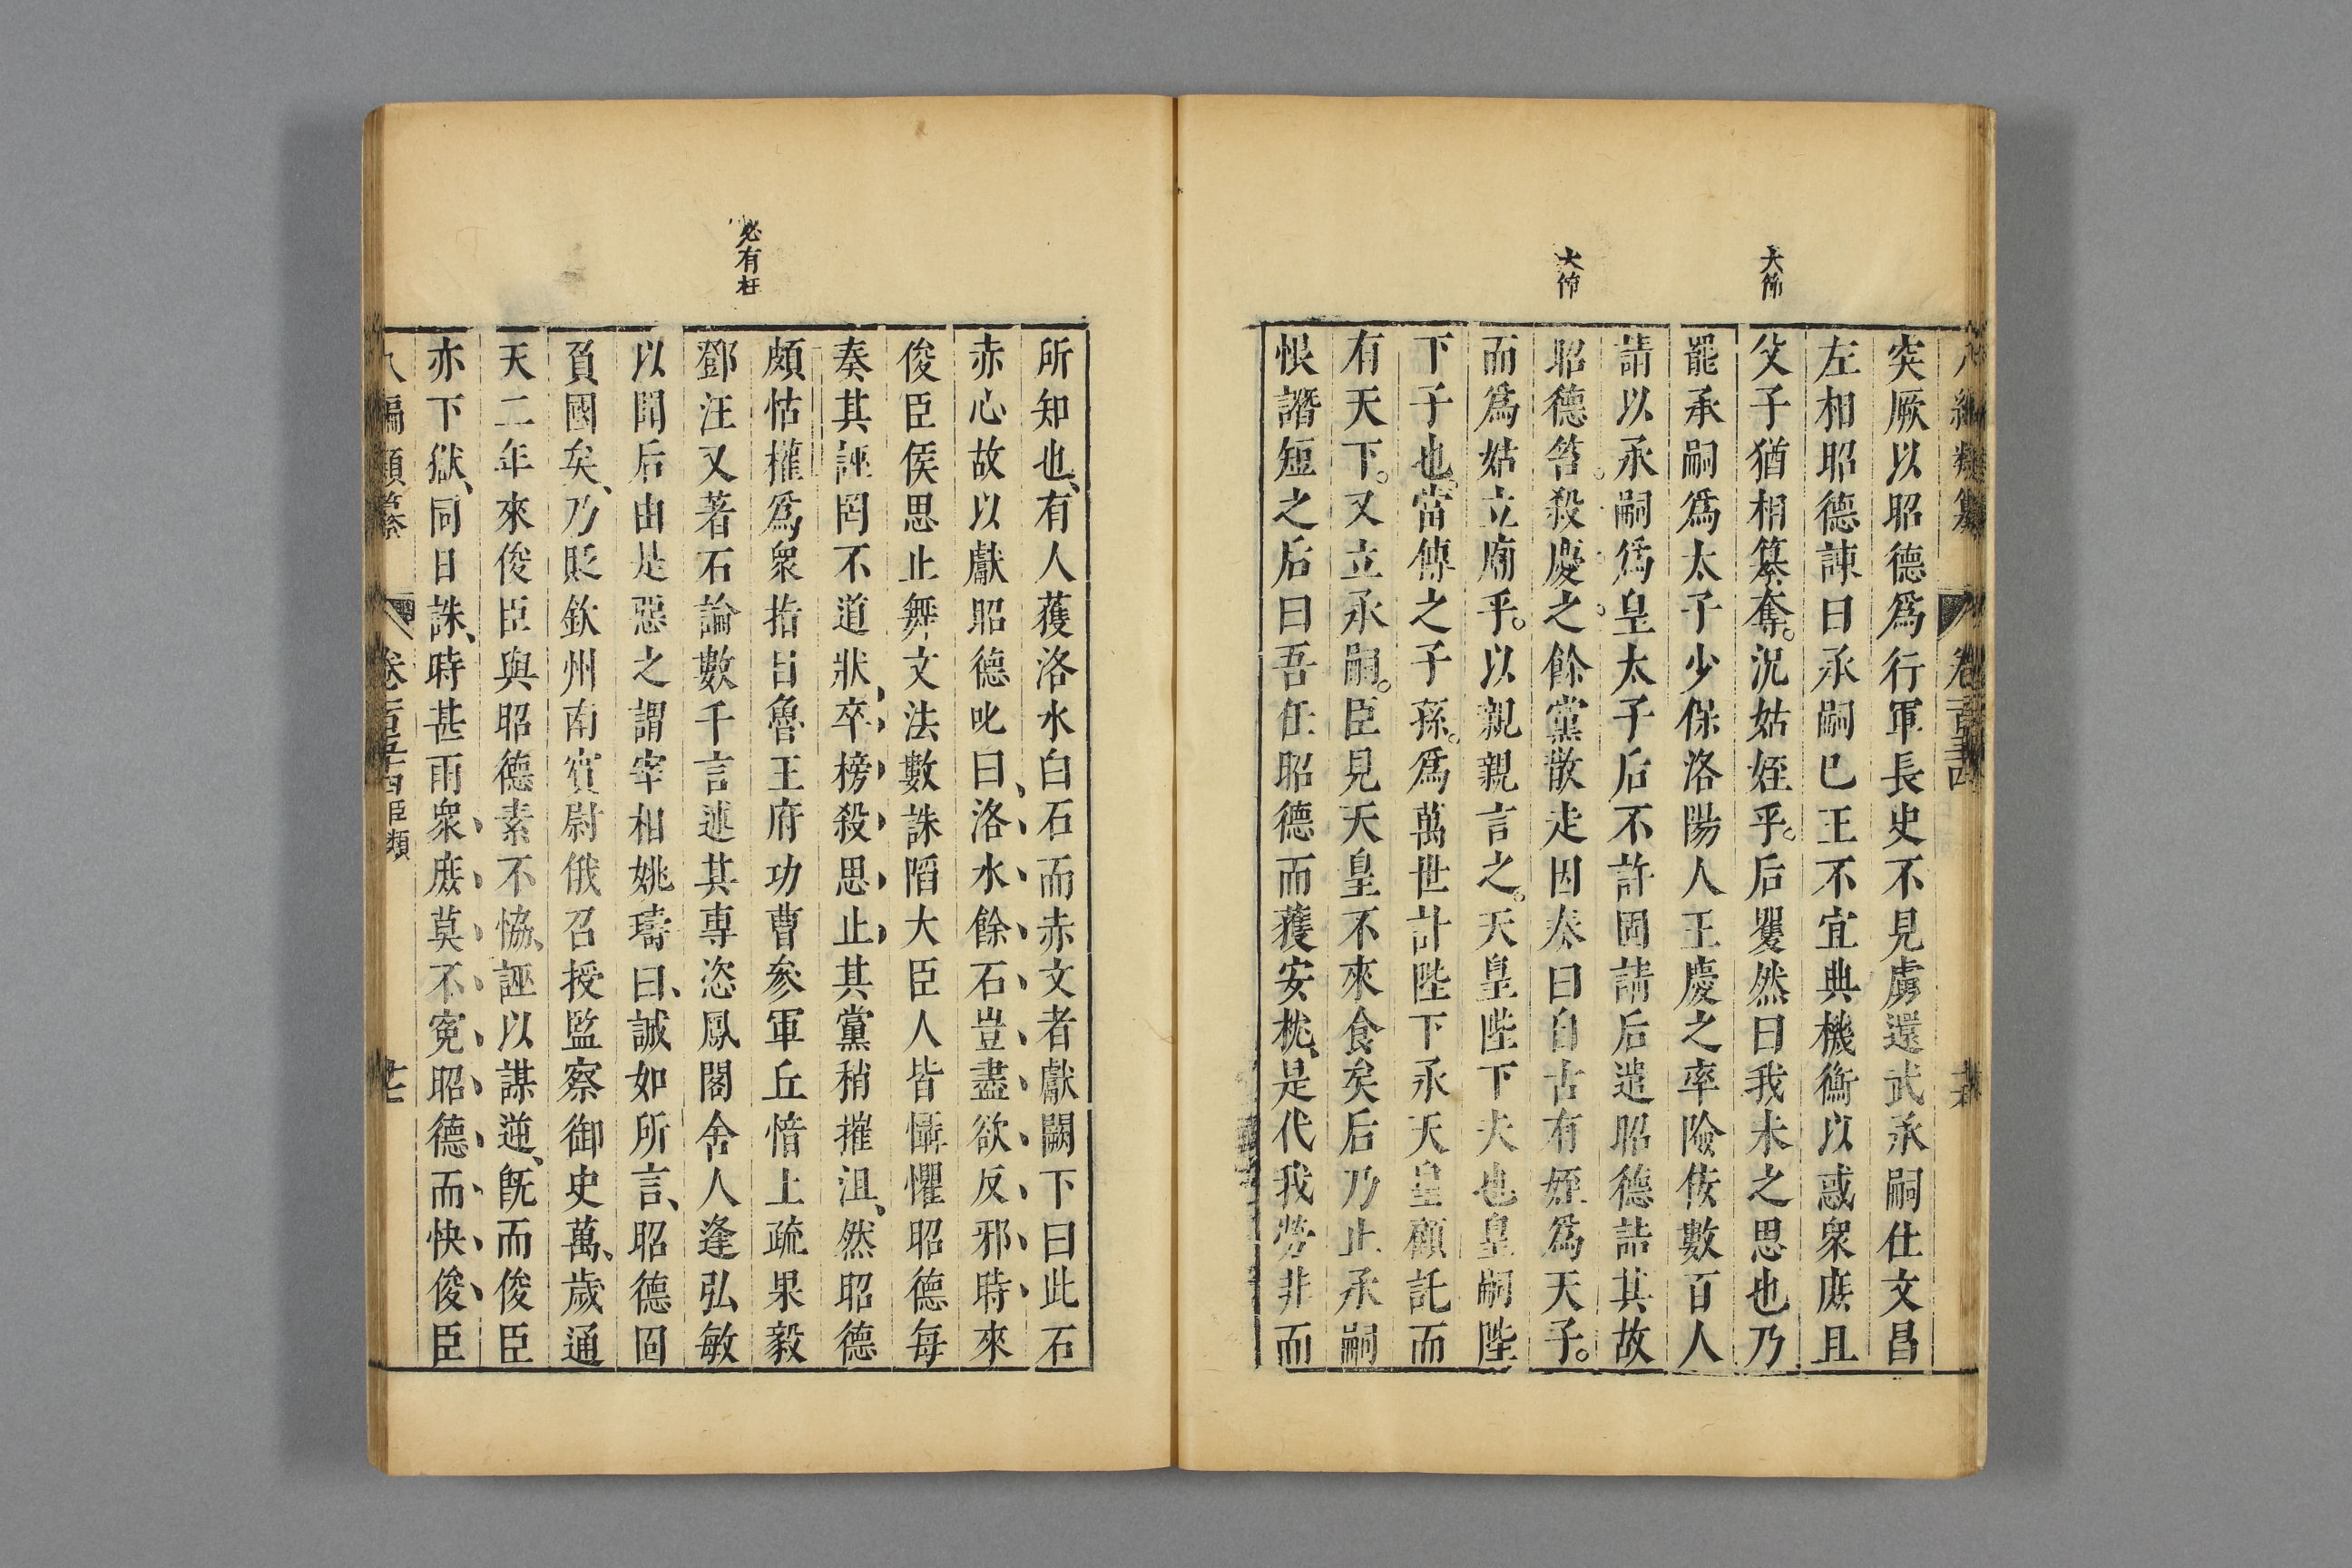 大節
大節
八編類纂 卷百五十四
突厥以昭德爲行軍長史不見虜還武承嗣仕文昌
左相昭德諫曰承嗣已王不宜典機衡以惑衆庶且
父子猶相篡奪。況姑姪乎。后矍然曰我未之思也乃
罷承嗣爲太子少保洛陽人王慶之率險佞數百人
請以承嗣爲皇太子后不許固請后遣昭德詰其故
昭德笞。殺慶之。餘黨散走因奏曰自古有姪爲天子。
而爲姑立廟乎。以親親言之。天皇陛下夫也皇嗣陛
下子也。當傳之子孫。爲萬世計陛下承天皇顧託而
有天下。又立承嗣。臣見天皇不來食矣后乃止承嗣
恨譖短之后曰吾任昭德而獲安枕、是代我勞非而
必有枉
所知也、有人獲洛水白石而赤文者獻闕下曰此石
赤心故以獻昭德叱曰、洛、水、餘、石、豈、盡、欲、反、邪、時、來
俊臣侯思止舞文法數誅陷大臣人皆懾懼昭德每
奏其誣罔不道狀、卒、榜、殺、思、止、其黨稍摧沮、然昭德
頗怙權爲衆指目魯王府功曹參軍丘愔上疏果毅
鄧注又著石論數千言述其專恣鳳閣舍人逢弘敏
以聞后由是惡之謂宰相姚璹曰、誠如所言、昭德固
負國矣、乃貶欽州南賓尉俄召授監察御史萬、歲通
天二年來俊臣與昭德素不恊、誣以謀逆、旣而俊臣
亦下獄、同日誅、時甚雨衆、庶、莫、不、寃、昭、德、而、快、俊、臣
八編類纂 卷百五十四臣類 廿七